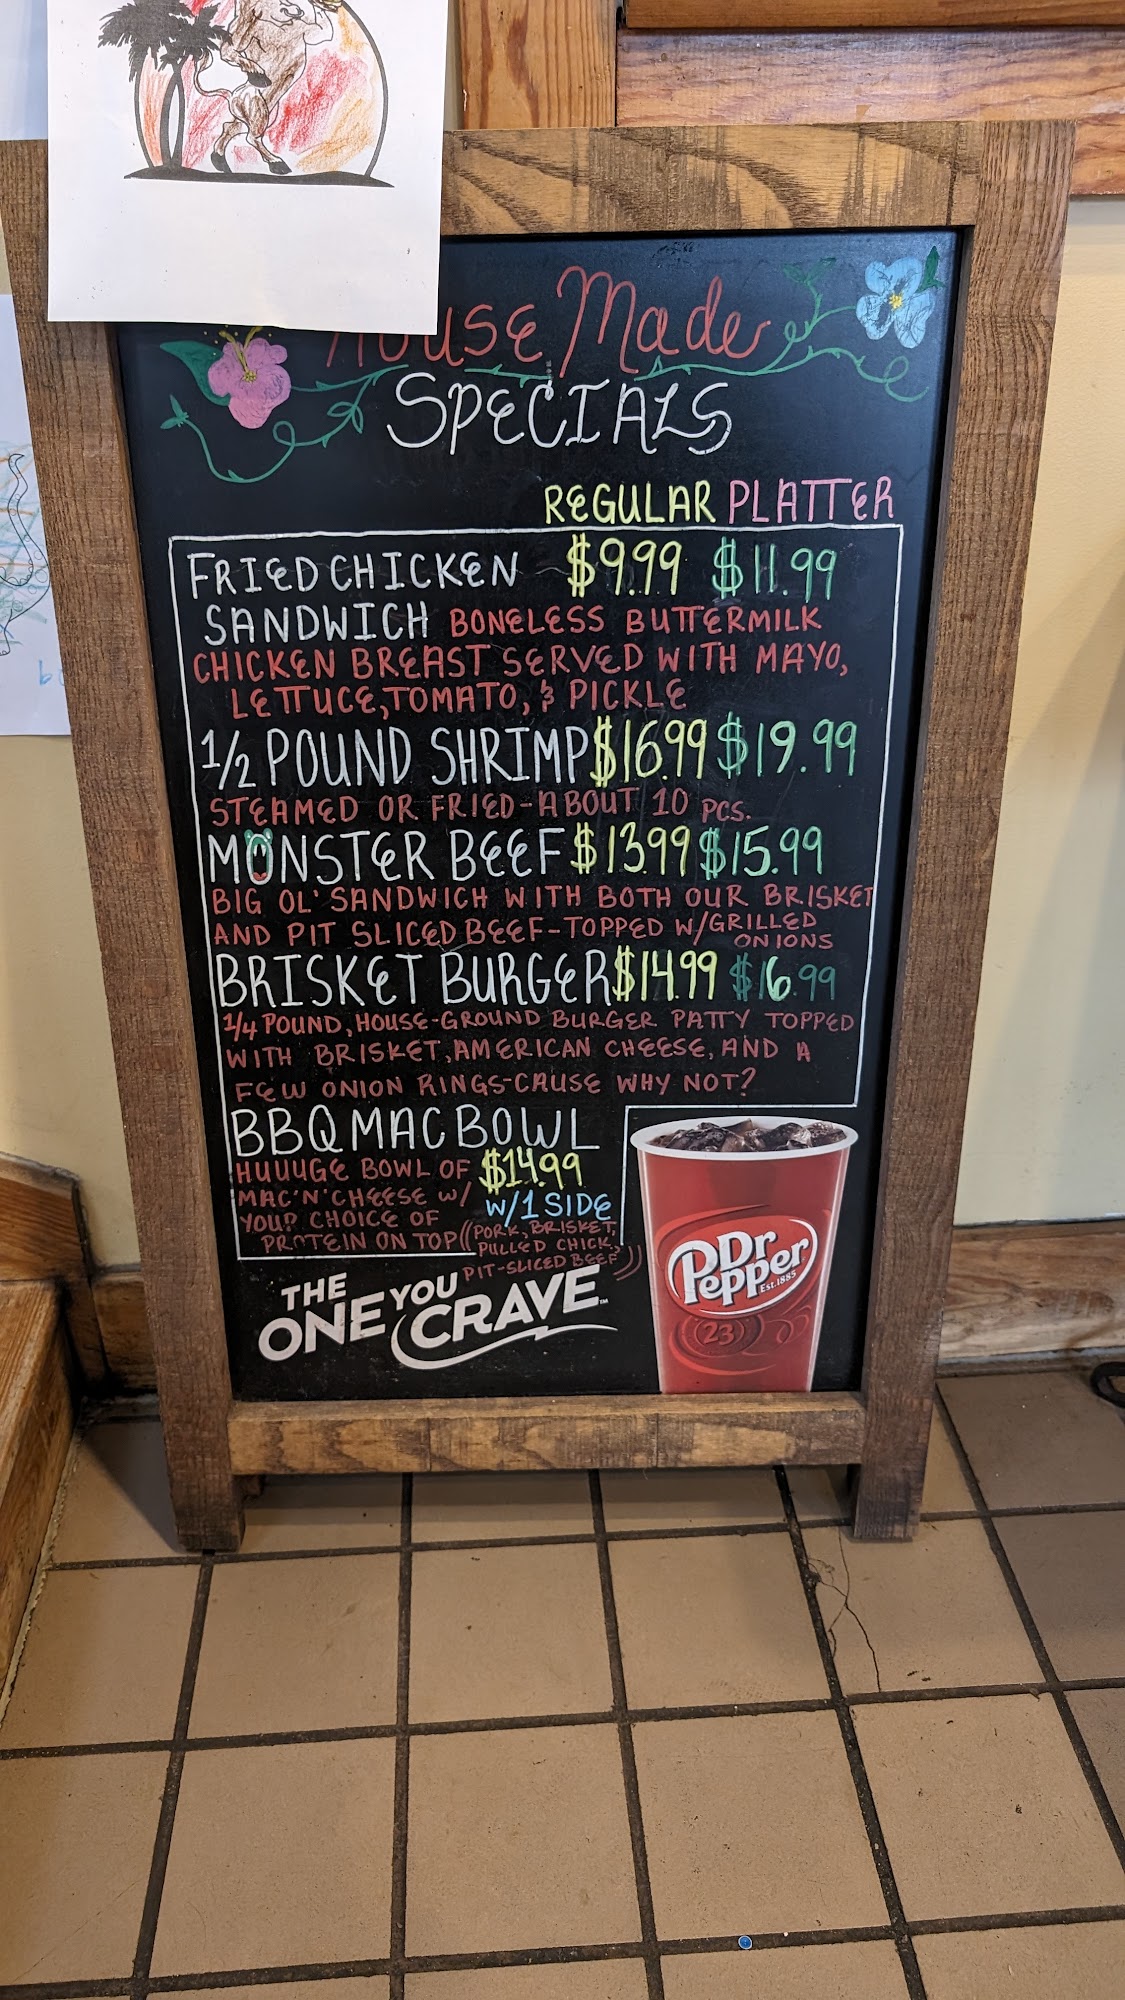 House Made
SPECIALS
REGULAR PLATTER
FRIED CHICKEN $9.99 $11.99
SANDWICH BONELESS BUTTERMILK
CHICKEN BREAST SERVED WITH MAYO,
LETTUCE, TOMATO, & PICKLE
1/2 POUND SHRIMP $16.99 $19.99
STEAMED OR FRIED-ABOUT 10 PCS.
MONSTER BEEF $13.99 $15.99
BIG OL' SANDWICH WITH BOTH OUR BRISKET
AND PIT SLICED BEEF-TOPPED W/GRILLED
ONIONS
BRISKET BURGER $14.99 $16.99
1/4 POUND, HOUSE-GROUND BURGER PATTY TOPPED
WITH BRISKET, AMERICAN CHEESE, AND A
FEW ONION RINGS-CAUSE WHY NOT?
BBQ MAC BOWL
HUUUGE BOWL OF $14.99
MAC'N'CHEESE W/ W/1 SIDE
YOUR CHOICE OF
PROTEIN ON TOP ((PORK, BRISKET,
PULLED CHICK,
PIT-SLICED BEEF))
THE
ONE YOU
CRAVE™
Dr
Pepper
Est. 1885
23